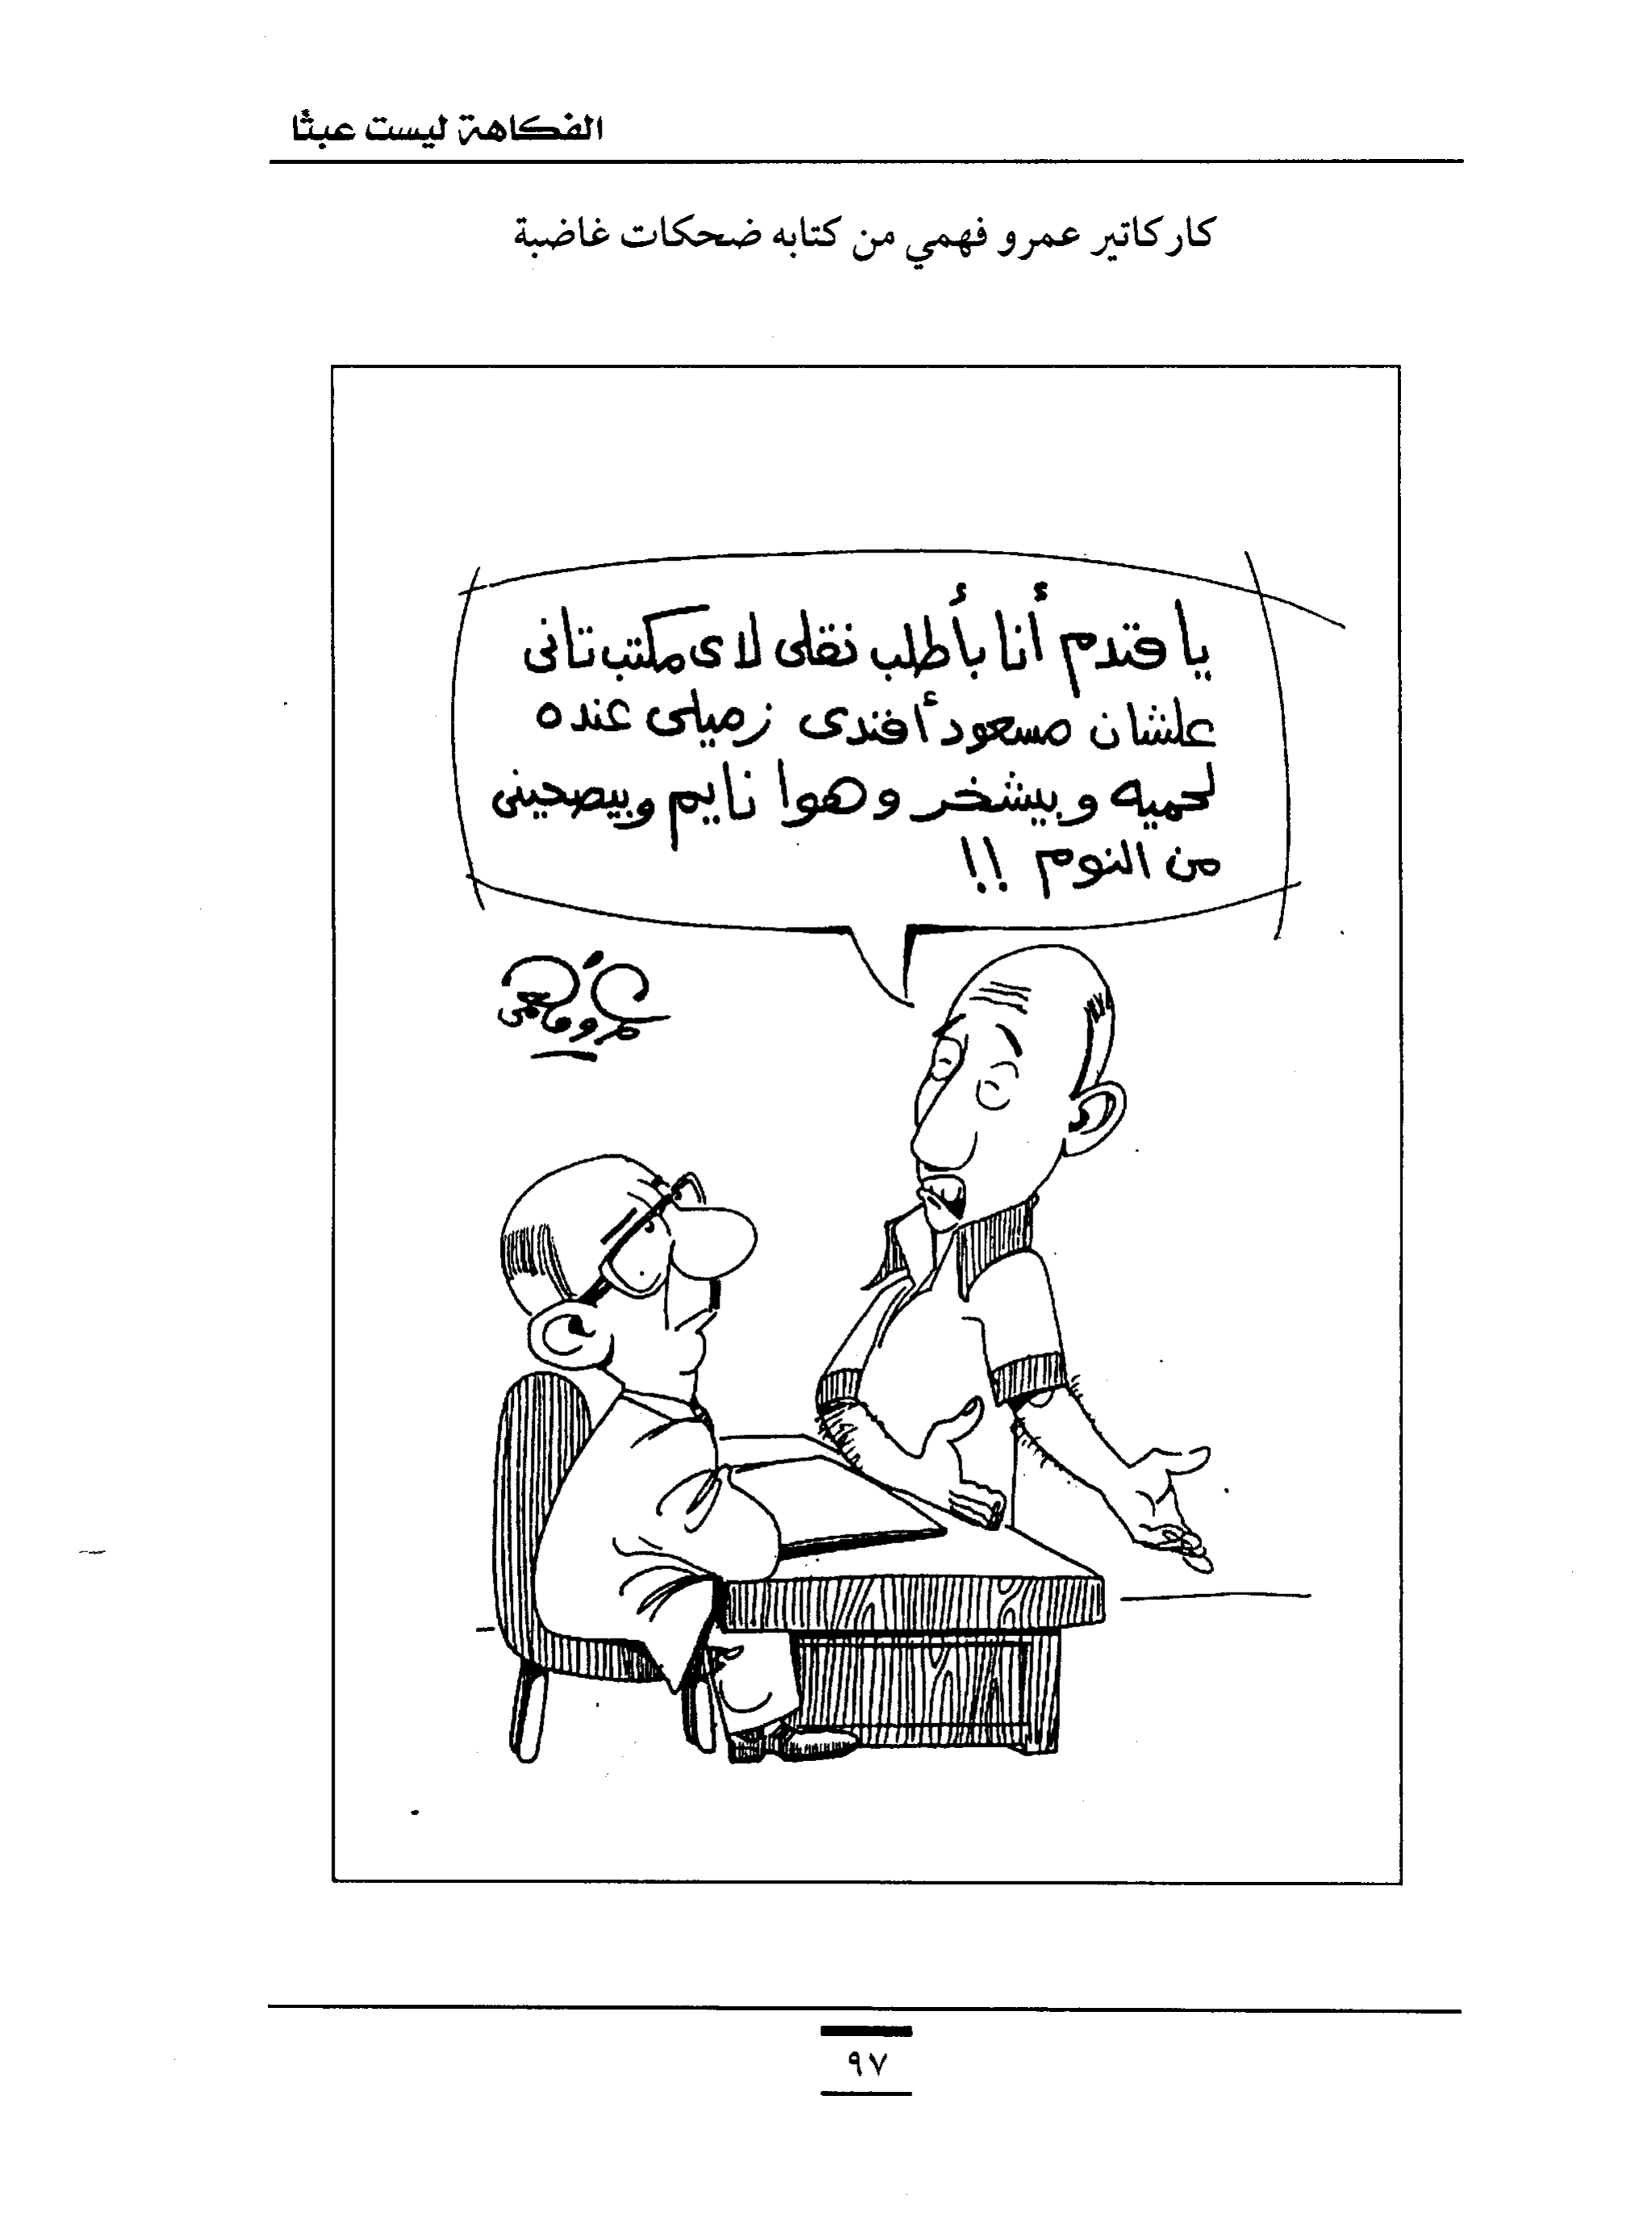 الفكاهة ليست عبثًا
كاركاتير عمرو فهمي من كتابه ضحكات غاضبة
يا فندم أنا بأطلب نقلى لاى مكتب تانى
علشان مسعود أفندى زميلى عنده
لحميه وبيشخر وهوا نايم وبيصحينى
من النوم !!
عمرو فهمى
٩٧